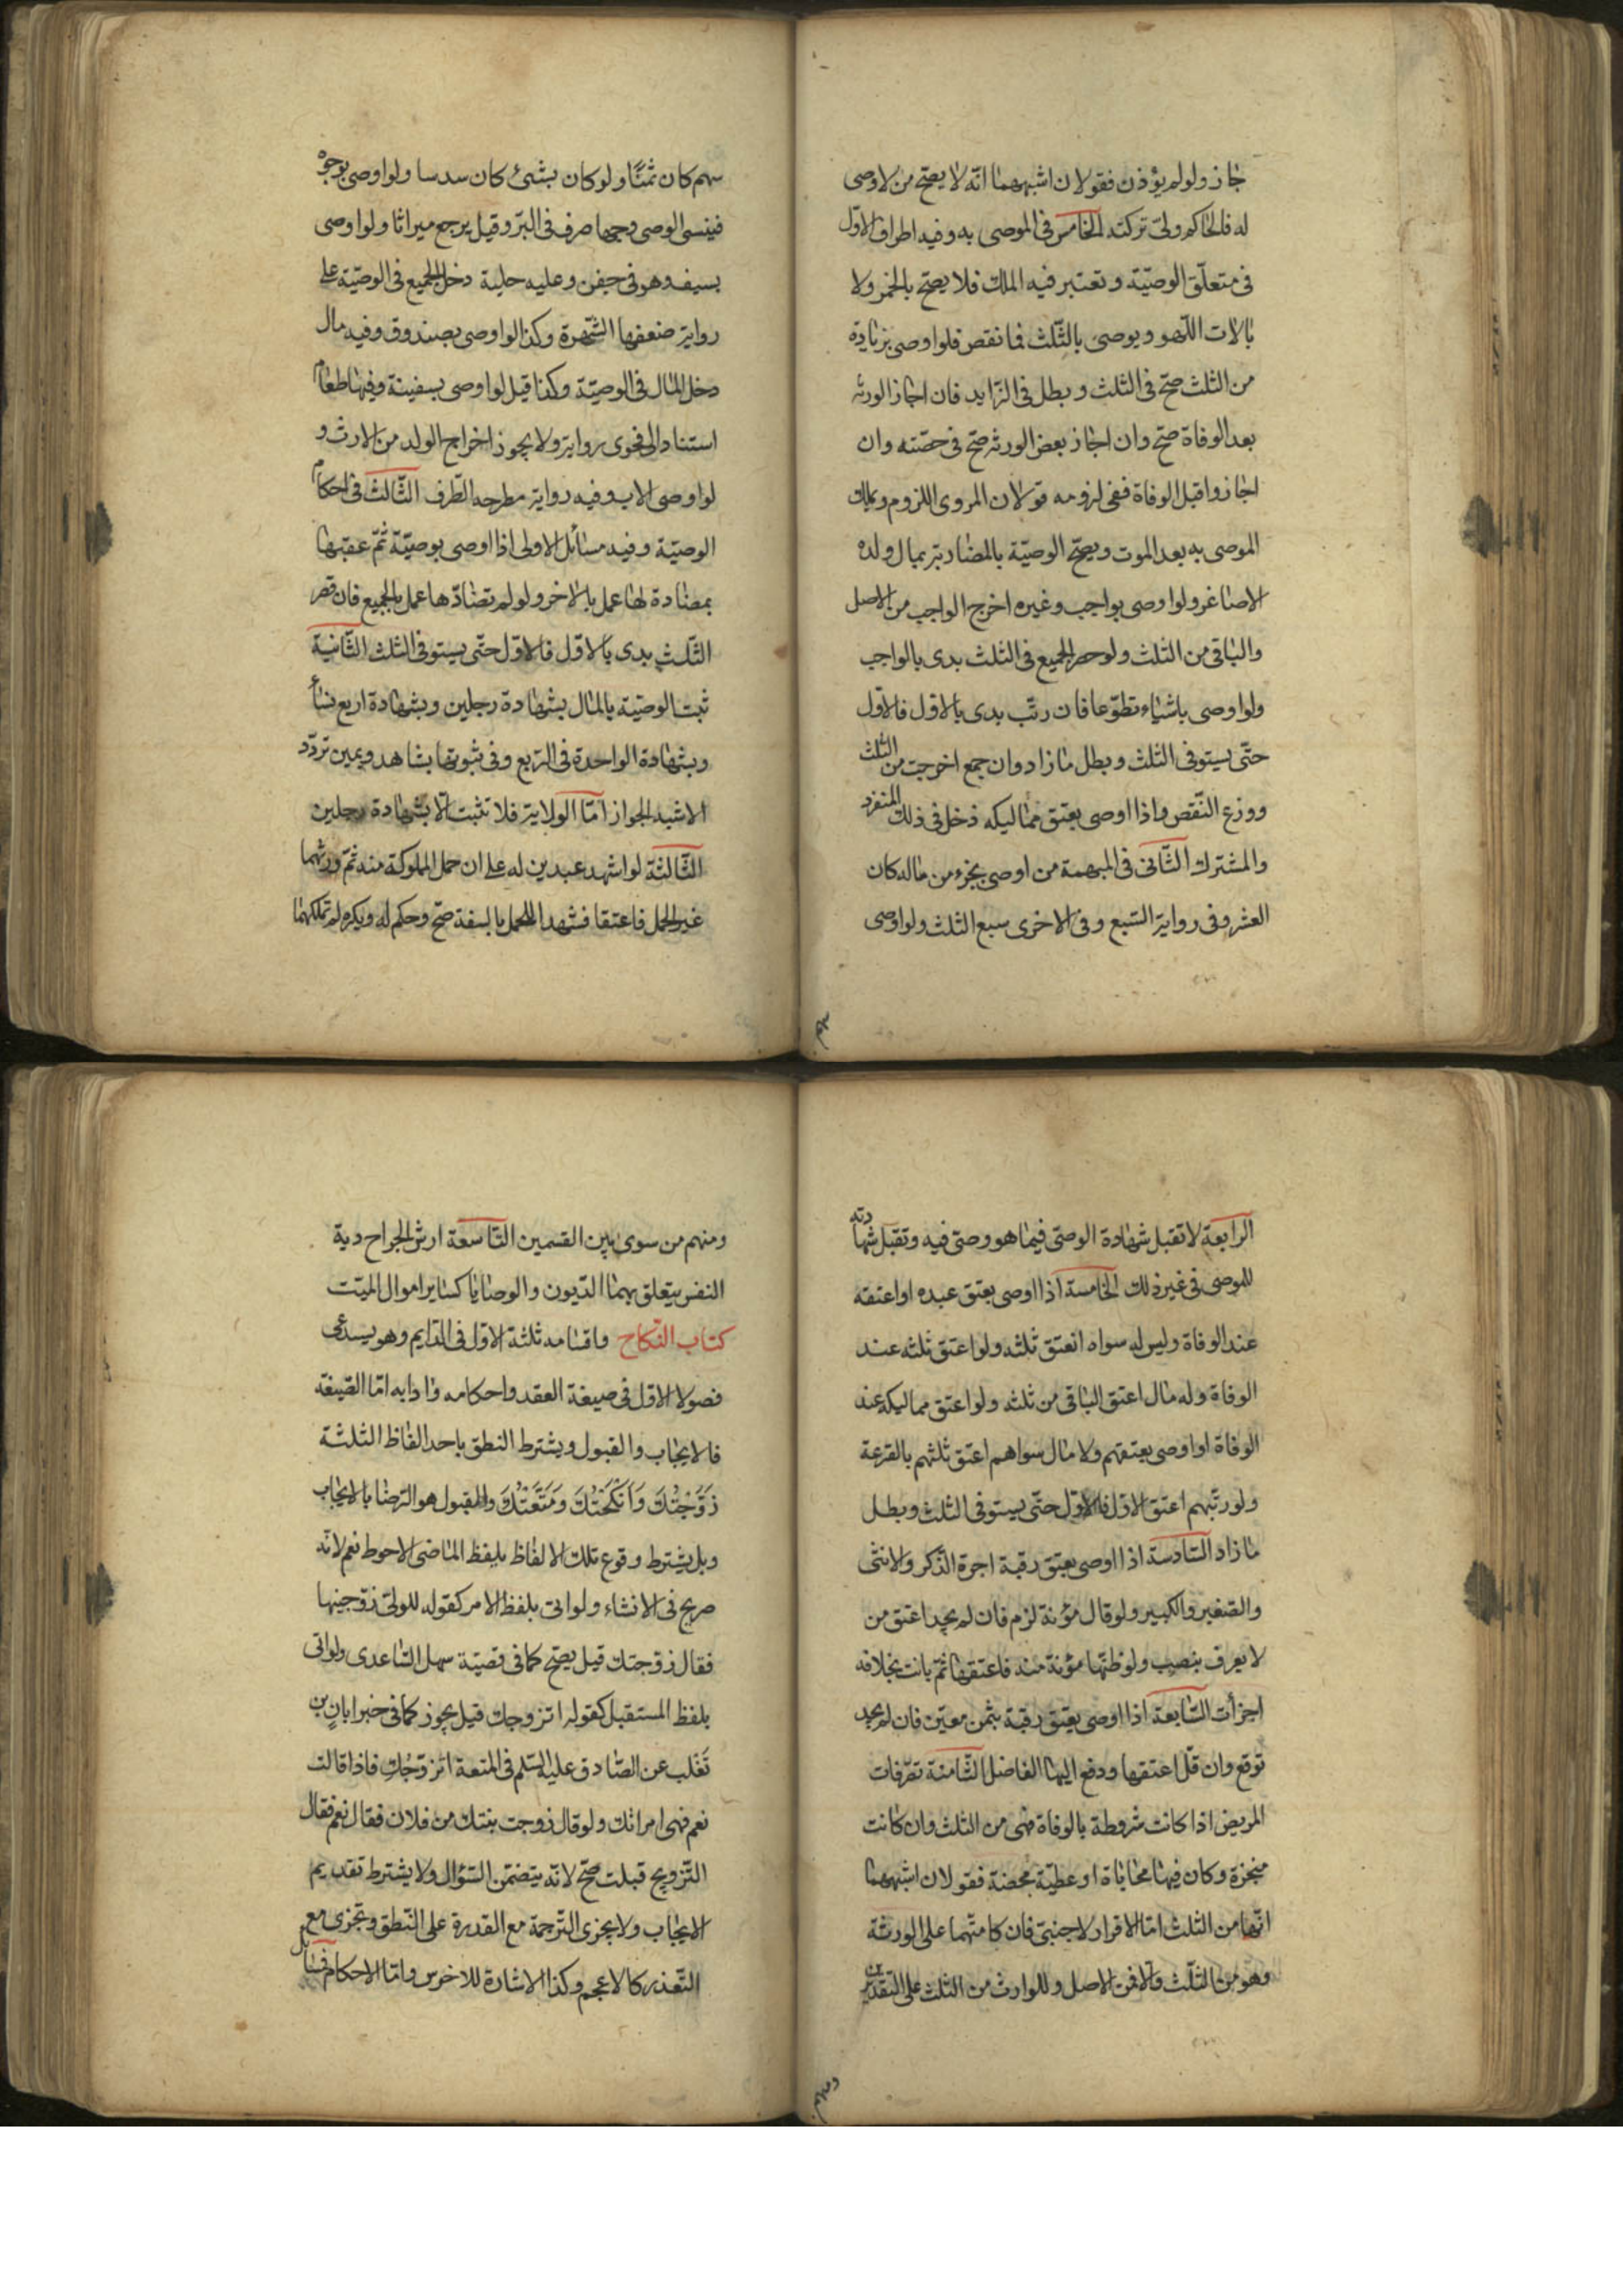 جاز ولو لم يؤذن فقولان اشبههما انّه لا يصحّ من لا وصى
له فالحاكم ولىّ تركته الخامس فى الموصى به وفيه اطراف الاوّل
فى متعلّق الوصيّة وتعتبر فيه الملك فلا يصحّ بالخمر ولا
بالات اللّهو ويوصى بالثّلث فما نقص فلو اوصى بزيادة
من الثلث صحّ فى الثلث وبطل فى الزّايد فان اجاز الورثه
بعد الوفاة صحّ وان اجاز بعض الورثه صحّ فى حصّته وان
اجازوا قبل الوفاة ففى لزومه قولان المروى اللزوم ويملك
الموصى به بعد الموت ويصحّ الوصيّة بالمضاربة بمال ولده
الاصاغر ولو اوصى بواجب وغيره اخرج الواجب من الاصل
والباقى من الثلث ولو حصر الجميع فى الثلث بدى بالواجب
ولو اوصى باشياء تطوّعا فان رتّب بدى بالاوّل فالاوّل
حتّى يستوفى الثلث وبطل ما زاد وان جمع اخرجت من الثلث
ووزع النّقص واذا اوصى بعتق مماليكه دخل فى ذلك المنفرد
والمشترك الثّانى فى المبهمة من اوصى بجزء من ماله كان
العشر وفى رواية السّبع وفى الاخرى سبع الثلث ولو اوصى
سهم
سهم كان ثمنًا ولو كان بشئ كان سدسا ولو اوصى بوجوه
فينسى الوصى وجها صرف فى البرّ وقيل يرجع ميراثا ولو اوصى
بسيف وهو فى جفن وعليه حلية دخل الجميع فى الوصيّة على
رواية ضعفها الشّهرة وكذا لو اوصى بصندوق وفيه مال
دخل المال فى الوصيّة وكذا قيل لو اوصى بسفينة وفيها طعام
استنادا الى فحوى رواية ولا يجوز اخراج الولد من الارث و
لو اوصى الاب وفيه رواية مطرحه الطّرف الثّالث فى احكام
الوصيّة وفيه مسائل الاولى اذا اوصى بوصيّة ثمّ عقبها
بمضادة لها عمل بالاخر ولو لم تضادّها عمل بالجميع فان قصر
الثّلث بدى بالاوّل فالاوّل حتّى يستوفى الثلث الثّانية
ثبت الوصيّة بالمال بشهادة رجلين وبشهادة اربع نساء
وبشهادة الواحدة فى الرّبع وفى ثبوتها بشاهد ويمين تردّد
الاشبه الجواز امّا الولاية فلا تثبت الّا بشهادة رجلين
الثّالثة لو اشهد عبدين له على ان حمل المملوكة منه ثمّ ورثهما
غير الحمل فاعتقا فشهدا للحمل بالسفة صحّ وحكم له ويكره له تملكهما
الرابعة لا تقبل شهادة الوصىّ فيما هو وصىّ فيه وتقبل شهادته
للموصى فى غير ذلك الخامسة اذا اوصى بعتق عبده او اعتقه
عند الوفاة وليس له سواه انعتق ثلثه ولو اعتق ثلثه عند
الوفاة وله مال اعتق الباقى من ثلثه ولو اعتق مماليكه عند
الوفاة او اوصى بعتقهم ولا مال سواهم اعتق ثلثهم بالقرعة
ولو رتّبهم اعتق الاوّل فالاوّل حتّى يستوفى الثلث وبطل
ما زاد السّادسة اذا اوصى بعتق رقبة اجزء الذّكر والانثى
والصّغير والكبير ولو قال مؤنة لزم فان لم يجد اعتق من
لا يعرف بنصب ولو ظنّها مؤنة منه فاعتقها ثمّ بانت بخلافه
اجزأت السّابعة اذا اوصى بعتق رقبة بثمن معيّن فان لم يجد
توقع وان قلّ اعتقها ودفع اليها الفاضل الثّامنة تصّرفات
المريض اذا كانت مشروطة بالوفاة فهى من الثلث وان كانت
منجزة وكان فيها محاباة او عطيّة محضة فقولان اشبههما
انّها من الثلث امّا الاقرار لاجنبىّ فان كا متّهما على الورثة
وهو من الثّلث والّا فمن الاصل وللوارث من الثلث على التقديرين
ومنهم
ومنهم من سوى بين القسمين التّاسعة ارش الجراح دية
النفس يتعلق بهما الدّيون والوصايا كساير اموال الميّت
كتاب النّكاح واقسامه ثلثة الاوّل فى الدّايم وهو يستدعى
فصولا الاوّل فى صيغة العقد واحكامه وادابه امّا الصّيغة
فالايجاب والقبول ويشترط النطق باحد الفاظ الثلثة
زَوَّجْتُكَ وَاَنْكَحْتُكَ وَمَتَّعْتُكَ والقبول هو الرّضا بالايجاب
وبل يشترط وقوع تلك الالفاظ بلفظ الماضى الاحوط نعم لانّه
صريح فى الانشاء ولو اتى بلفظ الامر كقوله للولىّ زوّجنيها
فقال زوّجتك قيل يصحّ كما فى قصيّة سهل السّاعدى ولو اتى
بلفظ المستقبل كقوله اتزوجك قيل يجوز كما فى خبر ابان بن
تَغْلب عن الصّادق عليه السّلم فى المتعة اتزوّجُكِ فاذا قالت
نعم فهى امراتك ولو قال زوجت بنتك من فلان فقال نعم فقال
التّزويج قبلت صحّ لانّه يتضمّن السّؤال ولا يشترط تقديم
الايجاب ولا يجزى التّرجمة مع القدرة على النّطق وتجزى مع
التّعذر كالاعجم وكذا الاشارة للاخرس وامّا الاحكام فمسائل